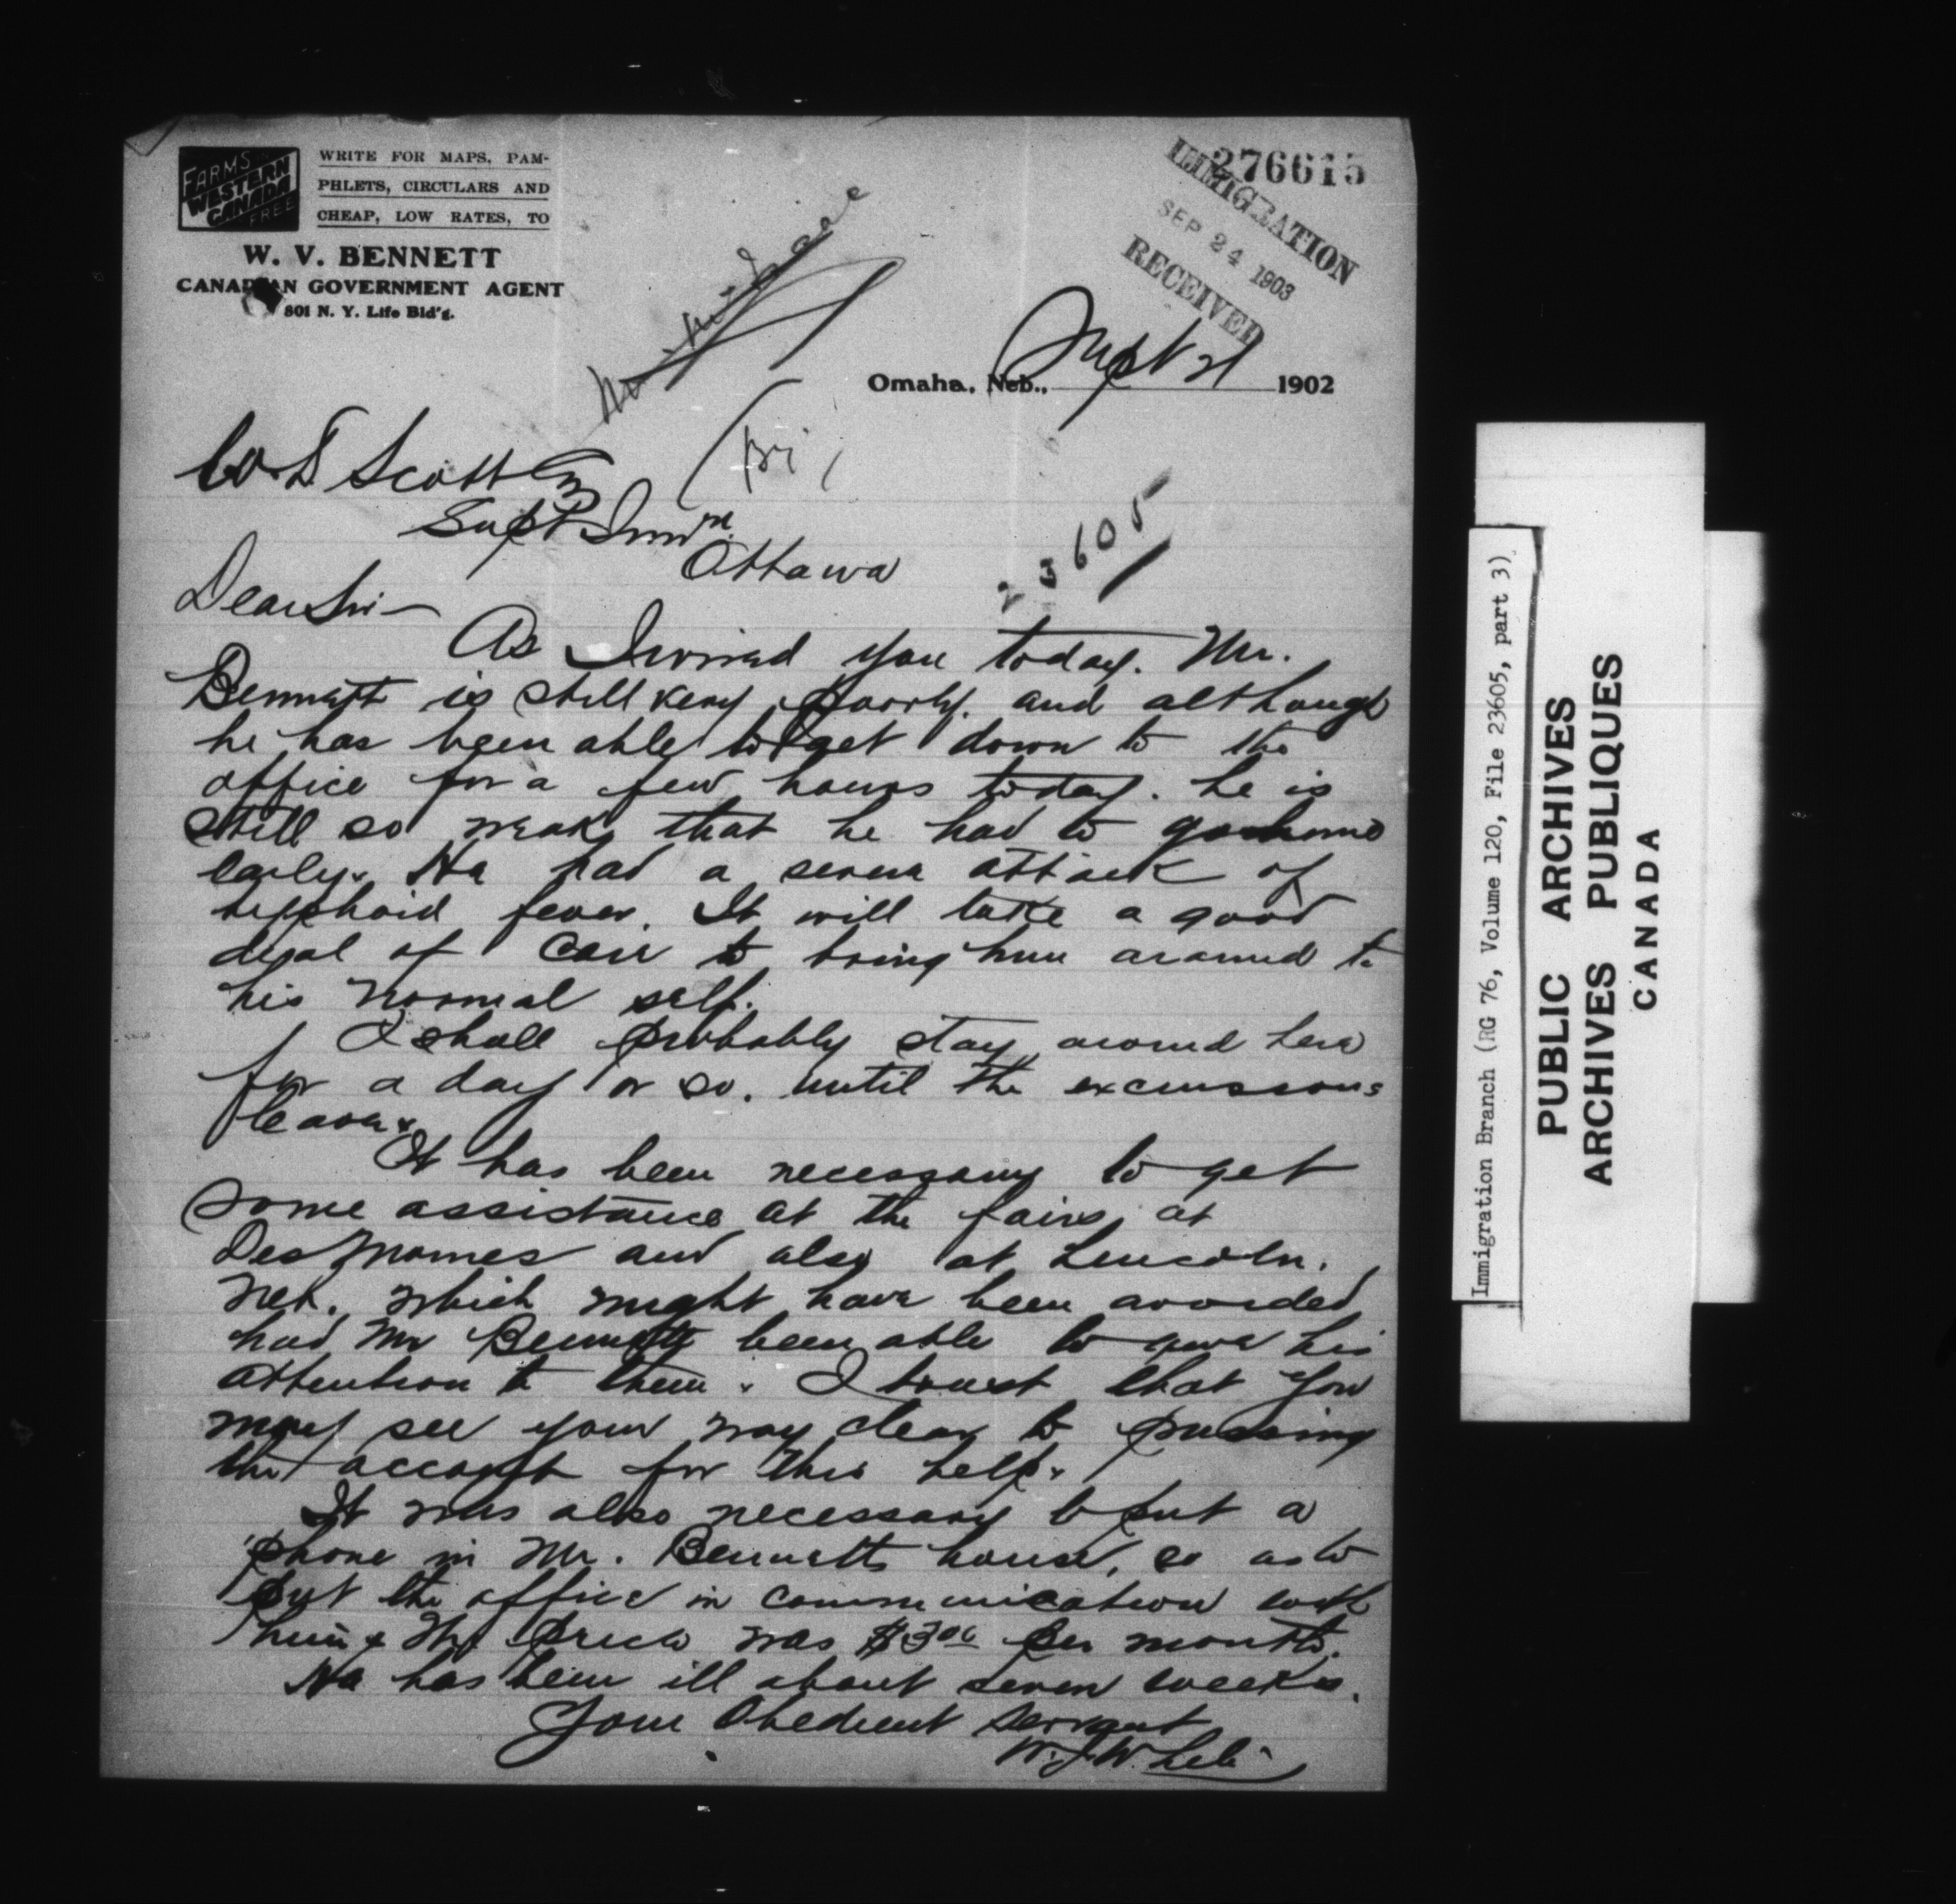 FARMS
WESTERN
CANADA
FREE
WRITE FOR MAPS, PAM-
PHLETS, CIRCULARS AND
CHEAP, LOW RATES, TO
W. V. BENNETT
CANADIAN GOVERNMENT AGENT
801 N. Y. Life Bld'g.
276615
IMMIGRATION
SEP 24 1903
RECEIVED
Omaha, Neb., Sept 21 1902
W D Scott Esq
Supt Immn.
Ottawa
23605
Dear Sir—
As I wired you today. Mr.
Bennett is still very poorly, and although
he has been able to get down to the
office for a few hours today. he is
still so weak that he had to go home
early. He had a severe attack of
typhoid fever. It will take a good
deal of care to bring him around to
his normal self.
I shall probably stay around here
for a day or so. until the excursions
leave.
It has been necessary to get
some assistance at the fairs, at
Des Moines and also at Lincoln,
Neb., which might have been avoided
had Mr Bennett been able to give his
attention to them. I trust that you
may see your way clear to passing
the account for this help.
It was also necessary to put a
phone in Mr. Bennetts house, so as to
put the office in communication with
him & the price was $3.00 per month.
He has been ill about seven weeks.
Your Obedient Servant
W. J. White
Immigration Branch (RG 76, Volume 120, File 23605, part 3)
PUBLIC ARCHIVES
ARCHIVES PUBLIQUES
CANADA